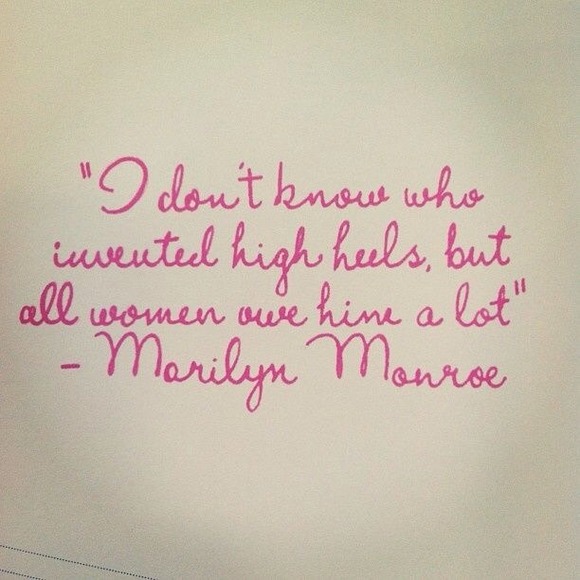 "I don't know who
invented high heels, but
all women owe him a lot"
- Marilyn Monroe